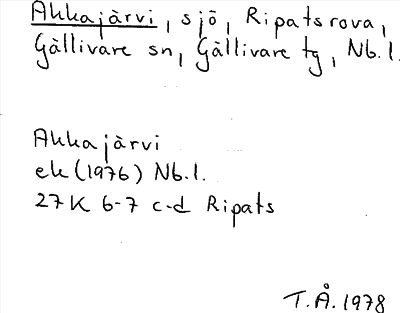 Akkajärvi, sjö, Ripatsrova,
Gällivare sn, Gällivare tg, Nb.l.
Akkajärvi
ek (1976) Nb.l.
27K 6-7 c-d Ripats
T.Å. 1978